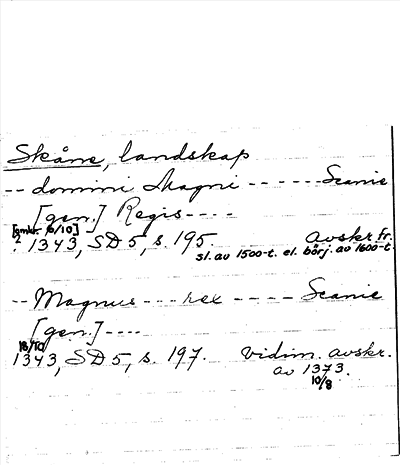 Skåne, landskap
-- domini Magni ------ Scanie
[gen.] Regis----
[omkr. 6/10]
? 1343, SD 5, s. 195. Avskr. fr.
sl. av 1500-t. el. börj. av 1600-t.
-- Magnus --- rex ---- Scanie
[gen.]----
18/10
1343, SD 5, s. 197. Vidim. avskr.
av 1373.
10/8